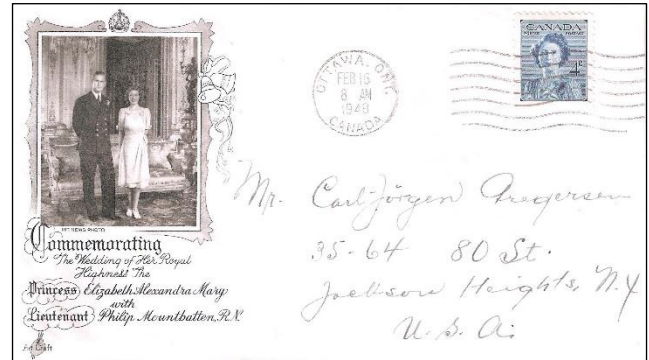 INT. NEWS PHOTO
Commemorating
The Wedding of Her Royal
Highness The
Princess Elizabeth Alexandra Mary
with
Lieutenant Philip Mountbatten, R.N.
Art Craft
OTTAWA, ONT.
FEB 16
8 AM
1948
CANADA
CANADA
POSTES POSTAGE
4¢
Mr. Carl-Jörgen Gregersen
35-64 80 St.
Jackson Heights, N.Y
U.S.A.